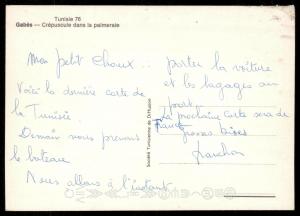 Tunisie 76
Gabès — Crépuscule dans la palmeraie
Mon petit Choux..
Voici la dernière carte de
la Tunisie.
Demain nous prenons
le bateau
Nous allons à l'instant
porter la voiture
et les bagages au
port.
La prochaine carte sera de
France
Grosses bises
Société Tunisienne de Diffusion